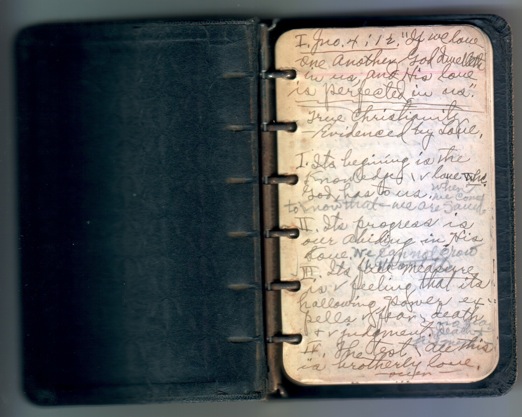 I. Jno. 4:12. "If we love
one another God dwelleth
in us, and His love
is perfected in us".
True Christianity
Evidenced by Love.
I. Its begining is the
Knowledge, & love
God has to us. When
we come
to know that we are Saved
II. Its progress is
our abiding in His
love. We cannot Grow
III. Its measure
is & feeling that its
hallowing power ex-
pells & fear, death
& judgment.
IV. The test, this
is brotherly love.